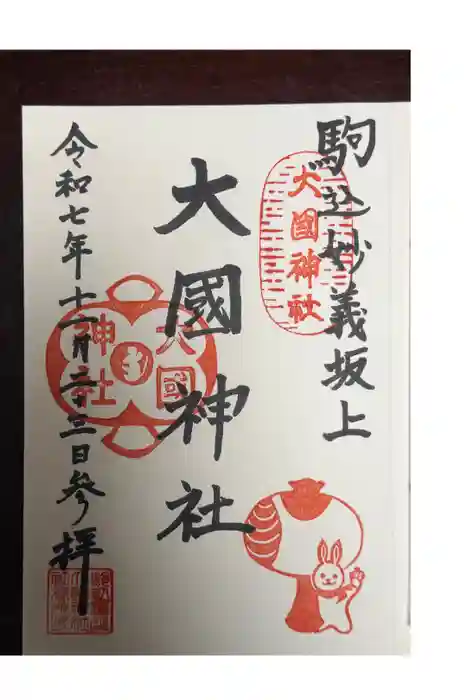 駒込妙義坂上
大國神社
大國神社
大國
神社
令和七年十一月二十三日参拝